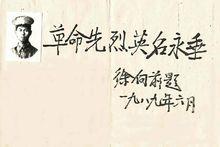 革命先烈英名永垂
徐向前题
一九八九年六月